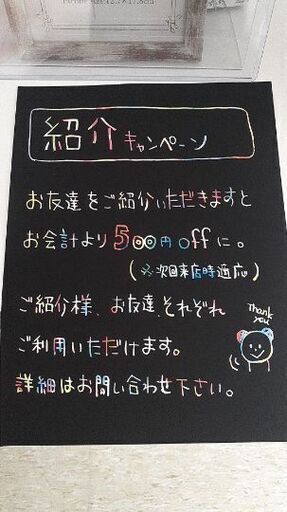 紹介キャンペーン
お友達をご紹介いただきますと
お会計より500円offに。
(※次回来店時適応)
ご紹介様、お友達、それぞれ
ご利用いただけます。
Thank you
詳細はお問い合わせ下さい。